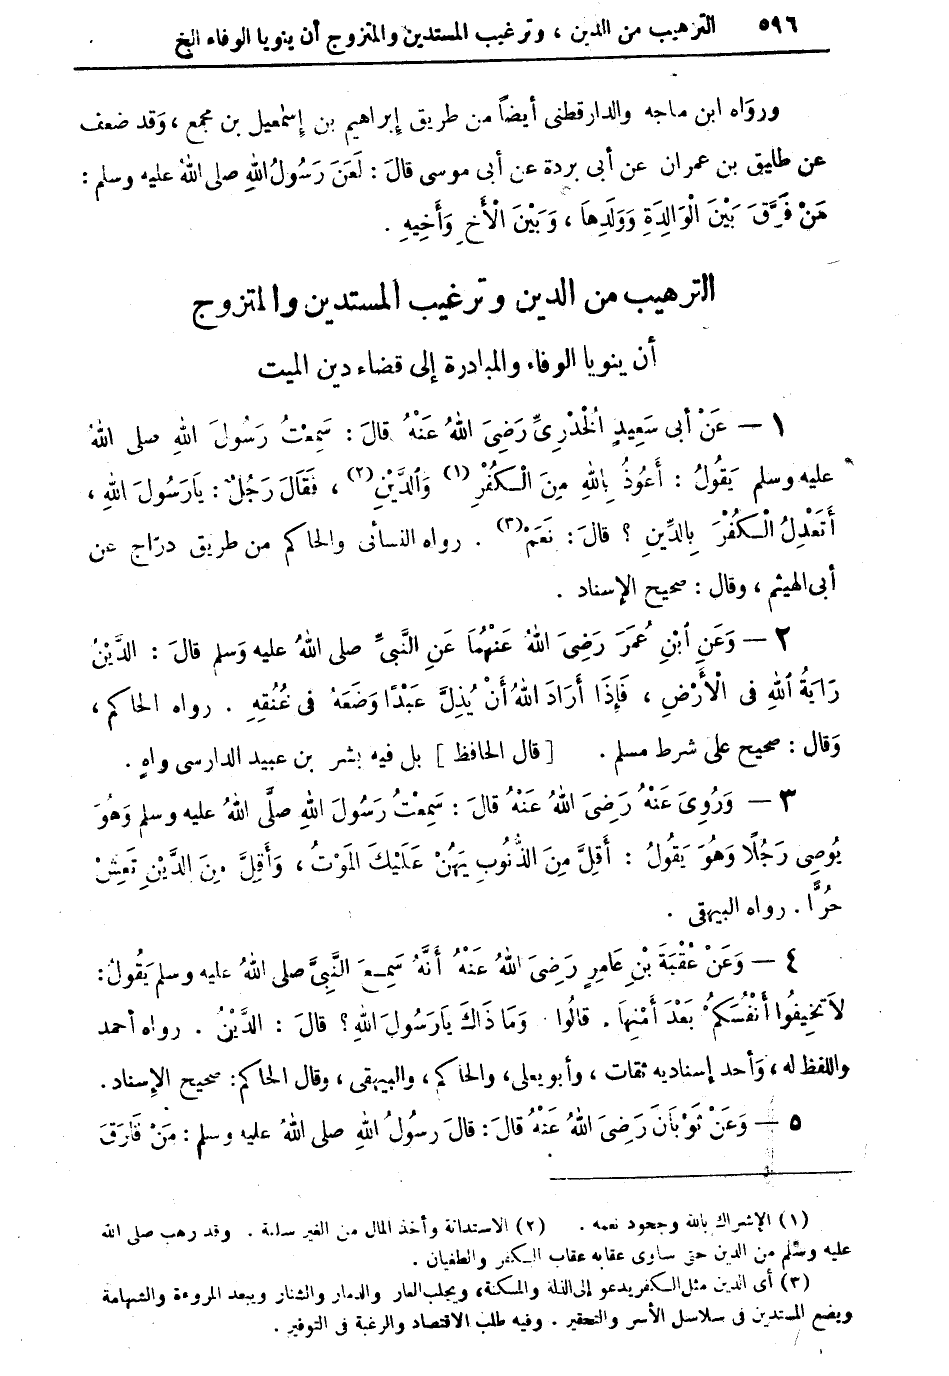 ٥٩٦ الترهيب من الدين ، وترغيب المستدين والمتزوج أن ينويا الوفاء الخ
ورواه ابن ماجه والدارقطنى أيضاً من طريق إبراهيم بن إسمعيل بن مجمع ، وقد ضعف
عن طليق بن عمران عن أبى بردة عن أبى موسى قالَ : لَعَنَ رَسُولُ اللهِ صلى اللهُ عليه وسلم :
مَنْ فَرَّقَ بَيْنَ الْوَالِدَةِ وَوَلَدِهَا ، وَبَيْنَ الْأَخِ وَأَخِيهِ .
الترهيب من الدين وترغيب المستدين والمتزوج
أن ينويا الوفاء والمبادرة إلى قضاء دين الميت
١ — عَنْ أبى سَعِيدٍ الْخُدْرِىِّ رَضِىَ اللهُ عَنْهُ قالَ : سَمِعْتُ رَسُولَ اللهِ صلى اللهُ
عليه وسلم يَقُولُ : أَعُوذُ بِاللهِ مِنَ الْكُفْرِ (١) وَالدَّيْنِ (٢) ، فَقَالَ رَجُلٌ : يَارَسُولَ اللهِ ،
أَتَعْدِلُ الْكُفْرَ بِالدَّيْنِ ؟ قالَ : نَعَمْ (٣) . رواه النسائى والحاكم من طريق درّاج عن
أبى الهيثم ، وقال : صحيح الإسناد .
٢ — وَعَنِ ابْنِ عُمَرَ رَضِىَ اللهُ عَنْهُمَا عَنِ النَّبِىِّ صلى اللهُ عليه وَسلم قالَ : الدَّيْنُ
رَايَةُ اللهِ فى الْأَرْضِ ، فَإِذَا أَرَادَ اللهُ أَنْ يُذِلَّ عَبْدًا وَضَعَهُ فى عُنُقِهِ . رواه الحاكم ،
وَقال : صحيح على شرط مسلم . [ قال الحافظ ] بل فيه بشر بن عبيد الدارسى واهٍ .
٣ — وَرُوِىَ عَنْهُ رَضِىَ اللهُ عَنْهُ قالَ : سَمِعْتُ رَسُولَ اللهِ صلَّى اللهُ عليه وسلم وَهُوَ
يُوصِى رَجُلًا وَهُوَ يَقُولُ : أَقِلَّ مِنَ الذُّنُوبِ يَهُنْ عَلَيْكَ الْمَوْتُ ، وَأَقِلَّ مِنَ الدَّيْنِ تَعِشْ
حُرًّا . رواه البيهقى .
٤ — وَعَنْ عُقْبَةَ بْنِ عَامِرٍ رَضِىَ اللهُ عَنْهُ أَنَّهُ سَمِعَ النَّبِىَّ صلى اللهُ عليه وسلم يَقُولُ :
لاَ تُخِيفُوا أَنْفُسَكُمْ بَعْدَ أَمْنِهَا . قالُوا وَمَا ذَاكَ يَارَسُولَ اللهِ ؟ قالَ : الدَّيْنُ . رواه أحمد
واللفظ له ، وَأحد إسناديه ثقات ، وأبو يعلى ، والحاكم ، والبيهقى ، وقال الحاكم : صحيح الإسناد .
٥ — وَعَنْ ثَوْبَانَ رَضِىَ اللهُ عَنْهُ قالَ : قالَ رسُولُ اللهِ صلى اللهُ عليه وسلم : مَنْ فَارَقَ
(١) الإشراك بالله وجحود نعمه . (٢) الاستدانة وأخذ المال من الغير سلمة . وقد رهب صلى الله
عليه وسلم من الدين حتى ساوى عقابه عقاب الكفر والطغيان .
(٣) أى الدين مثل الكفر يدعو إلى الذلة والمسكنة، ويجلب العار والدمار والشنار ويبعد المروءة والشهامة
ويضع المستدين فى سلاسل الأسر والتحقير . وفيه طلب الاقتصاد والرغبة فى التوفير .